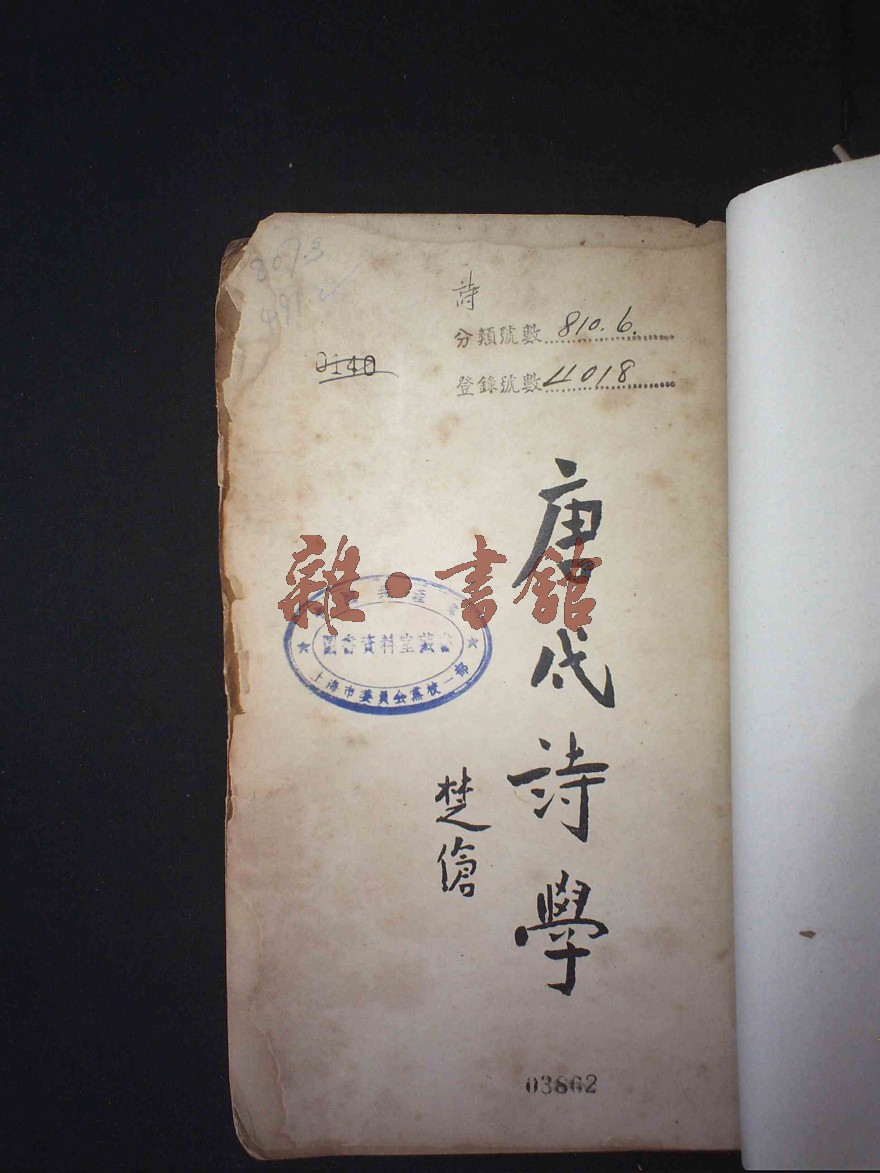 807.3
詩
分類號數 810.6.
登錄號數 4018
唐代詩學
楚傖
雜·書館
圖書資料室藏書
上海市委員會黨校一部
03862